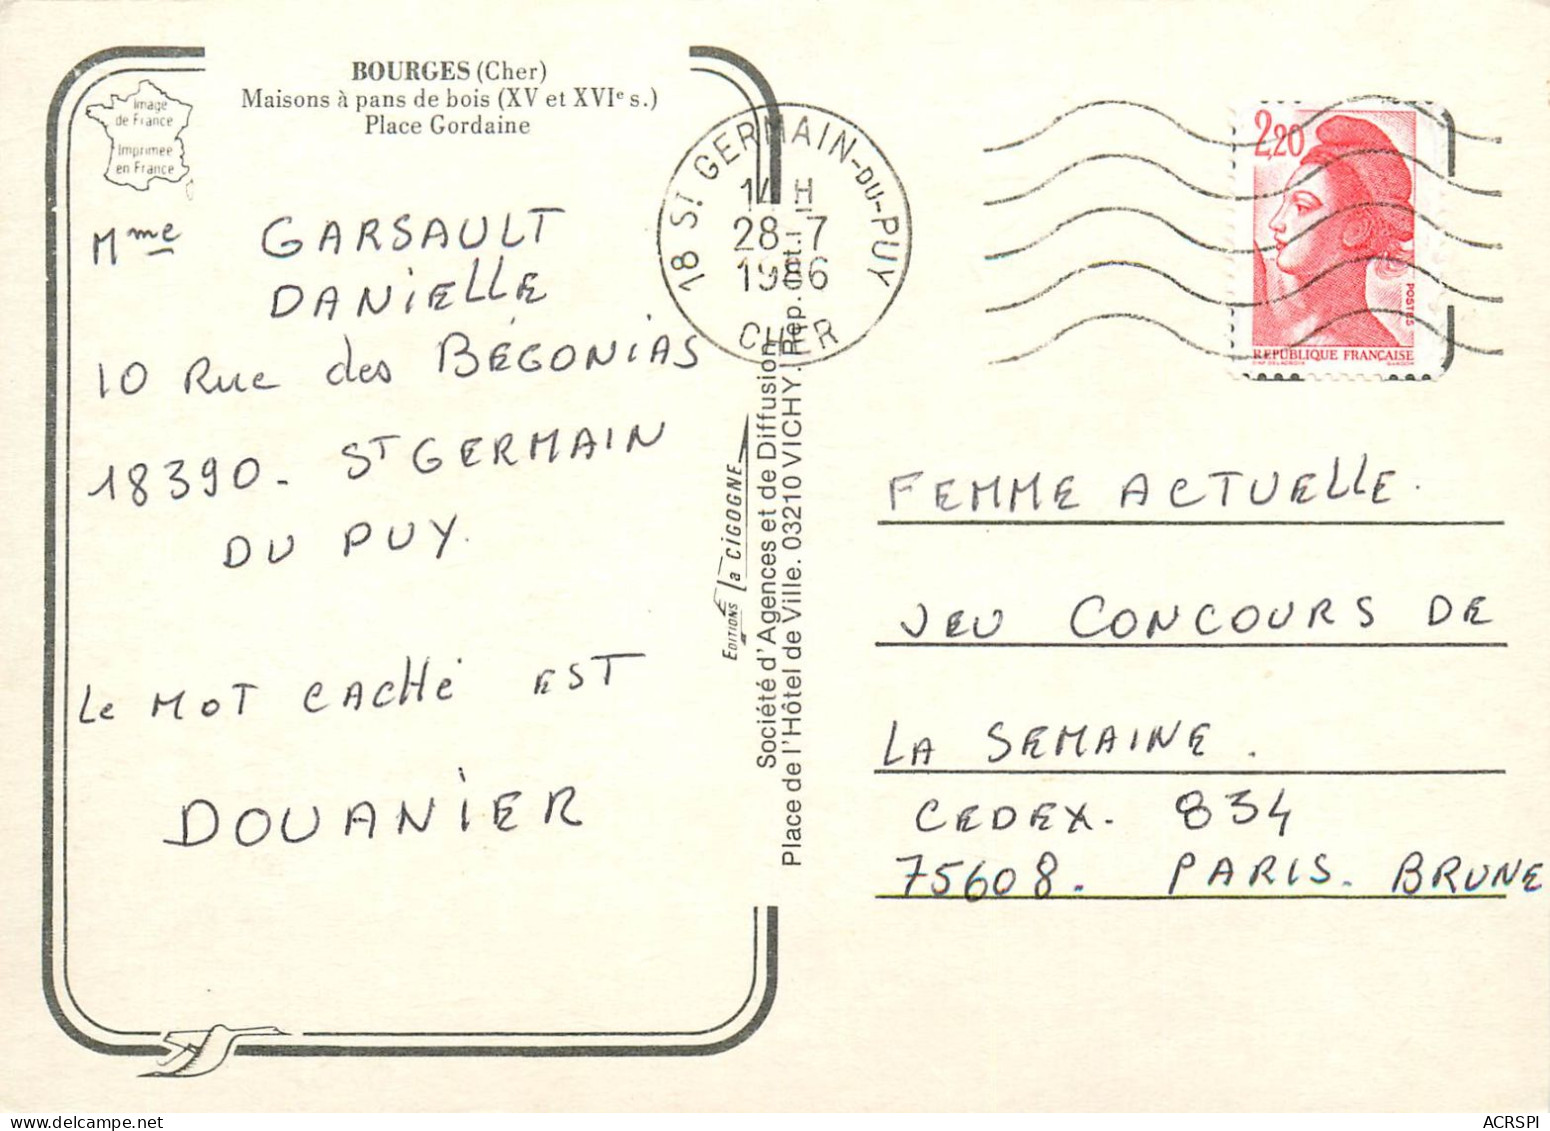 BOURGES (Cher)
Maisons à pans de bois (XV et XVIe s.)
Place Gordaine
Image
de France
Imprimée
en France
Mme GARSAULT
DANIELLE
10 Rue des BÉGONIAS
18390. ST GERMAIN
DU PUY.
Le MOT CACHÉ EST
DOUANIER
18 ST GERMAIN-DU-PUY
14 H
28-7
1986
CHER
EDITIONS la CIGOGNE
Société d'Agences et de Diffusion
Place de l'Hôtel de Ville. 03210 VICHY. Rep. int.
2,20
POSTES
REPUBLIQUE FRANÇAISE
FEMME ACTUELLE.
JEU CONCOURS DE
LA SEMAINE.
CEDEX. 834
75608. PARIS. BRUNE
ACRSPI